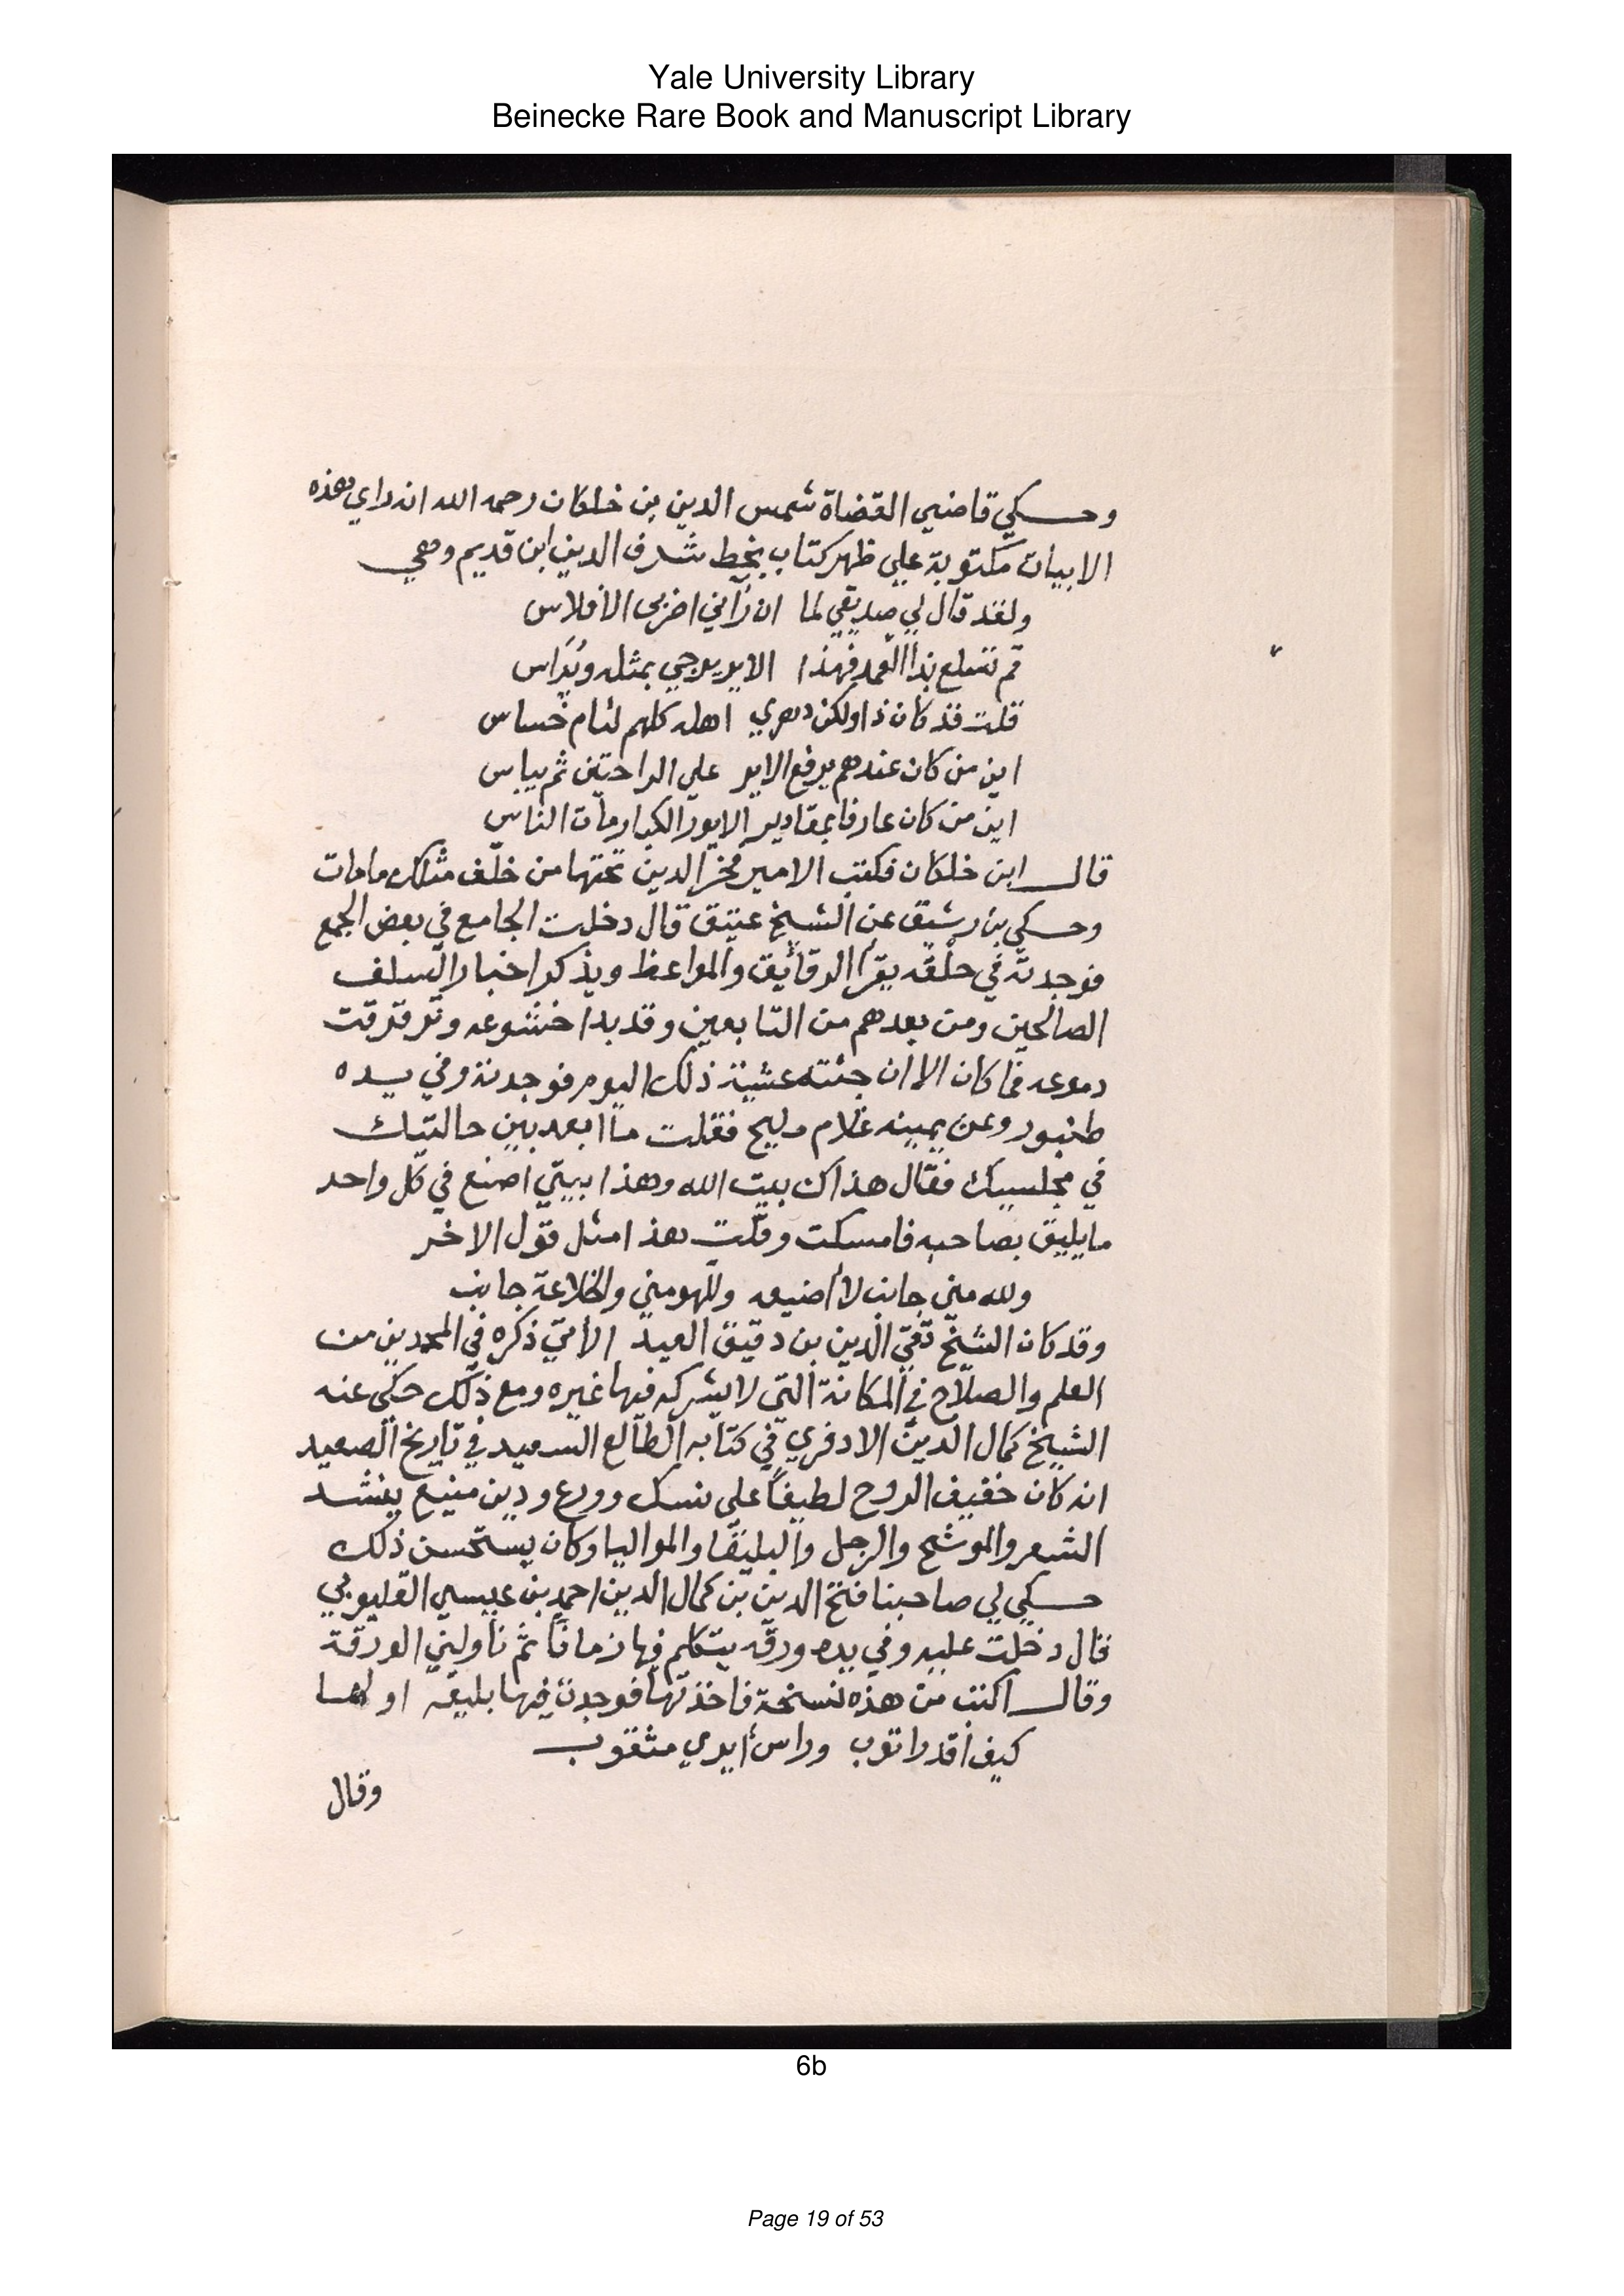 Yale University Library
Beinecke Rare Book and Manuscript Library
وحكي قاضي القضاة شمس الدين بن خلكان رحمه الله انه راي هذه
الابيات مكتوبة علي ظهر كتاب بخط شرف الدين ابن قديم وهي
ولقد قال لي صديقي لما ان رآني اضر بى الأفلاس
قم تسلع بذا القمد فهذا الاير يرجي بمثله ويُراس
قلت قد كان ذا ولكن دهري اهله كلهم لئام خساس
اين من كان عندهم يرفع الاير علي الراحتين ثم يباس
اين من كان عارفا بمقادير الايور الكبار مات الناس
قال ابن خلكان فكتب الامير فخر الدين تحتها من خلف مثلك ما مات
وحكي بن رشيق عن الشيخ عتيق قال دخلت الجامع في بعض الجمع
فوجدته في حلقه يقرأ الرقائيق والمواعظ ويذكر اخبار السلف
الصالحين ومن بعدهم من التابعين وقد بدا خشوعه وترقرقت
دموعه فما كان الا ان جئته عشية ذلك اليوم فوجدته وفي يده
طنبور وعن يمينه غلام مليح فقلت ما ابعد بين حالتيك
في مجلسيك فقال هذاك بيت الله وهذا بيتي اصنع في كل واحد
مايليق بصاحبه فامسكت وقلت هذا مثل قول الاخر
ولله مني جانب لا أضيعه وللهو مني والخلاعة جانب
وقد كان الشيخ تقي الدين بن دقيق العيد الأتي ذكره في المحمدين من
العلم والصلاح في المكانة التي لا يشركه فيها غيره ومع ذلك حكى عنه
الشيخ كمال الدين الادفري في كتابه الطالع السعيد في تاريخ الصعيد
انه كان خفيف الروح لطيفاً علي نسك وورع ودين منيع ينشد
الشعر والموشح والزجل والبليقا والمواليا وكان يستحسن ذلك
حكي لي صاحبنا فتح الدين بن كمال الدين احمد بن عيسي القليوبي
قال دخلت عليه وفي يده ورقه يتكلم فيها زمانا ثم ناولني الورقة
وقال اكتب من هذه نسخة فاخذتها فوجدت فيها بليقه اولها
كيف أقدر اتوب وراس ايري مثقوب
وقال
6b
Page 19 of 53